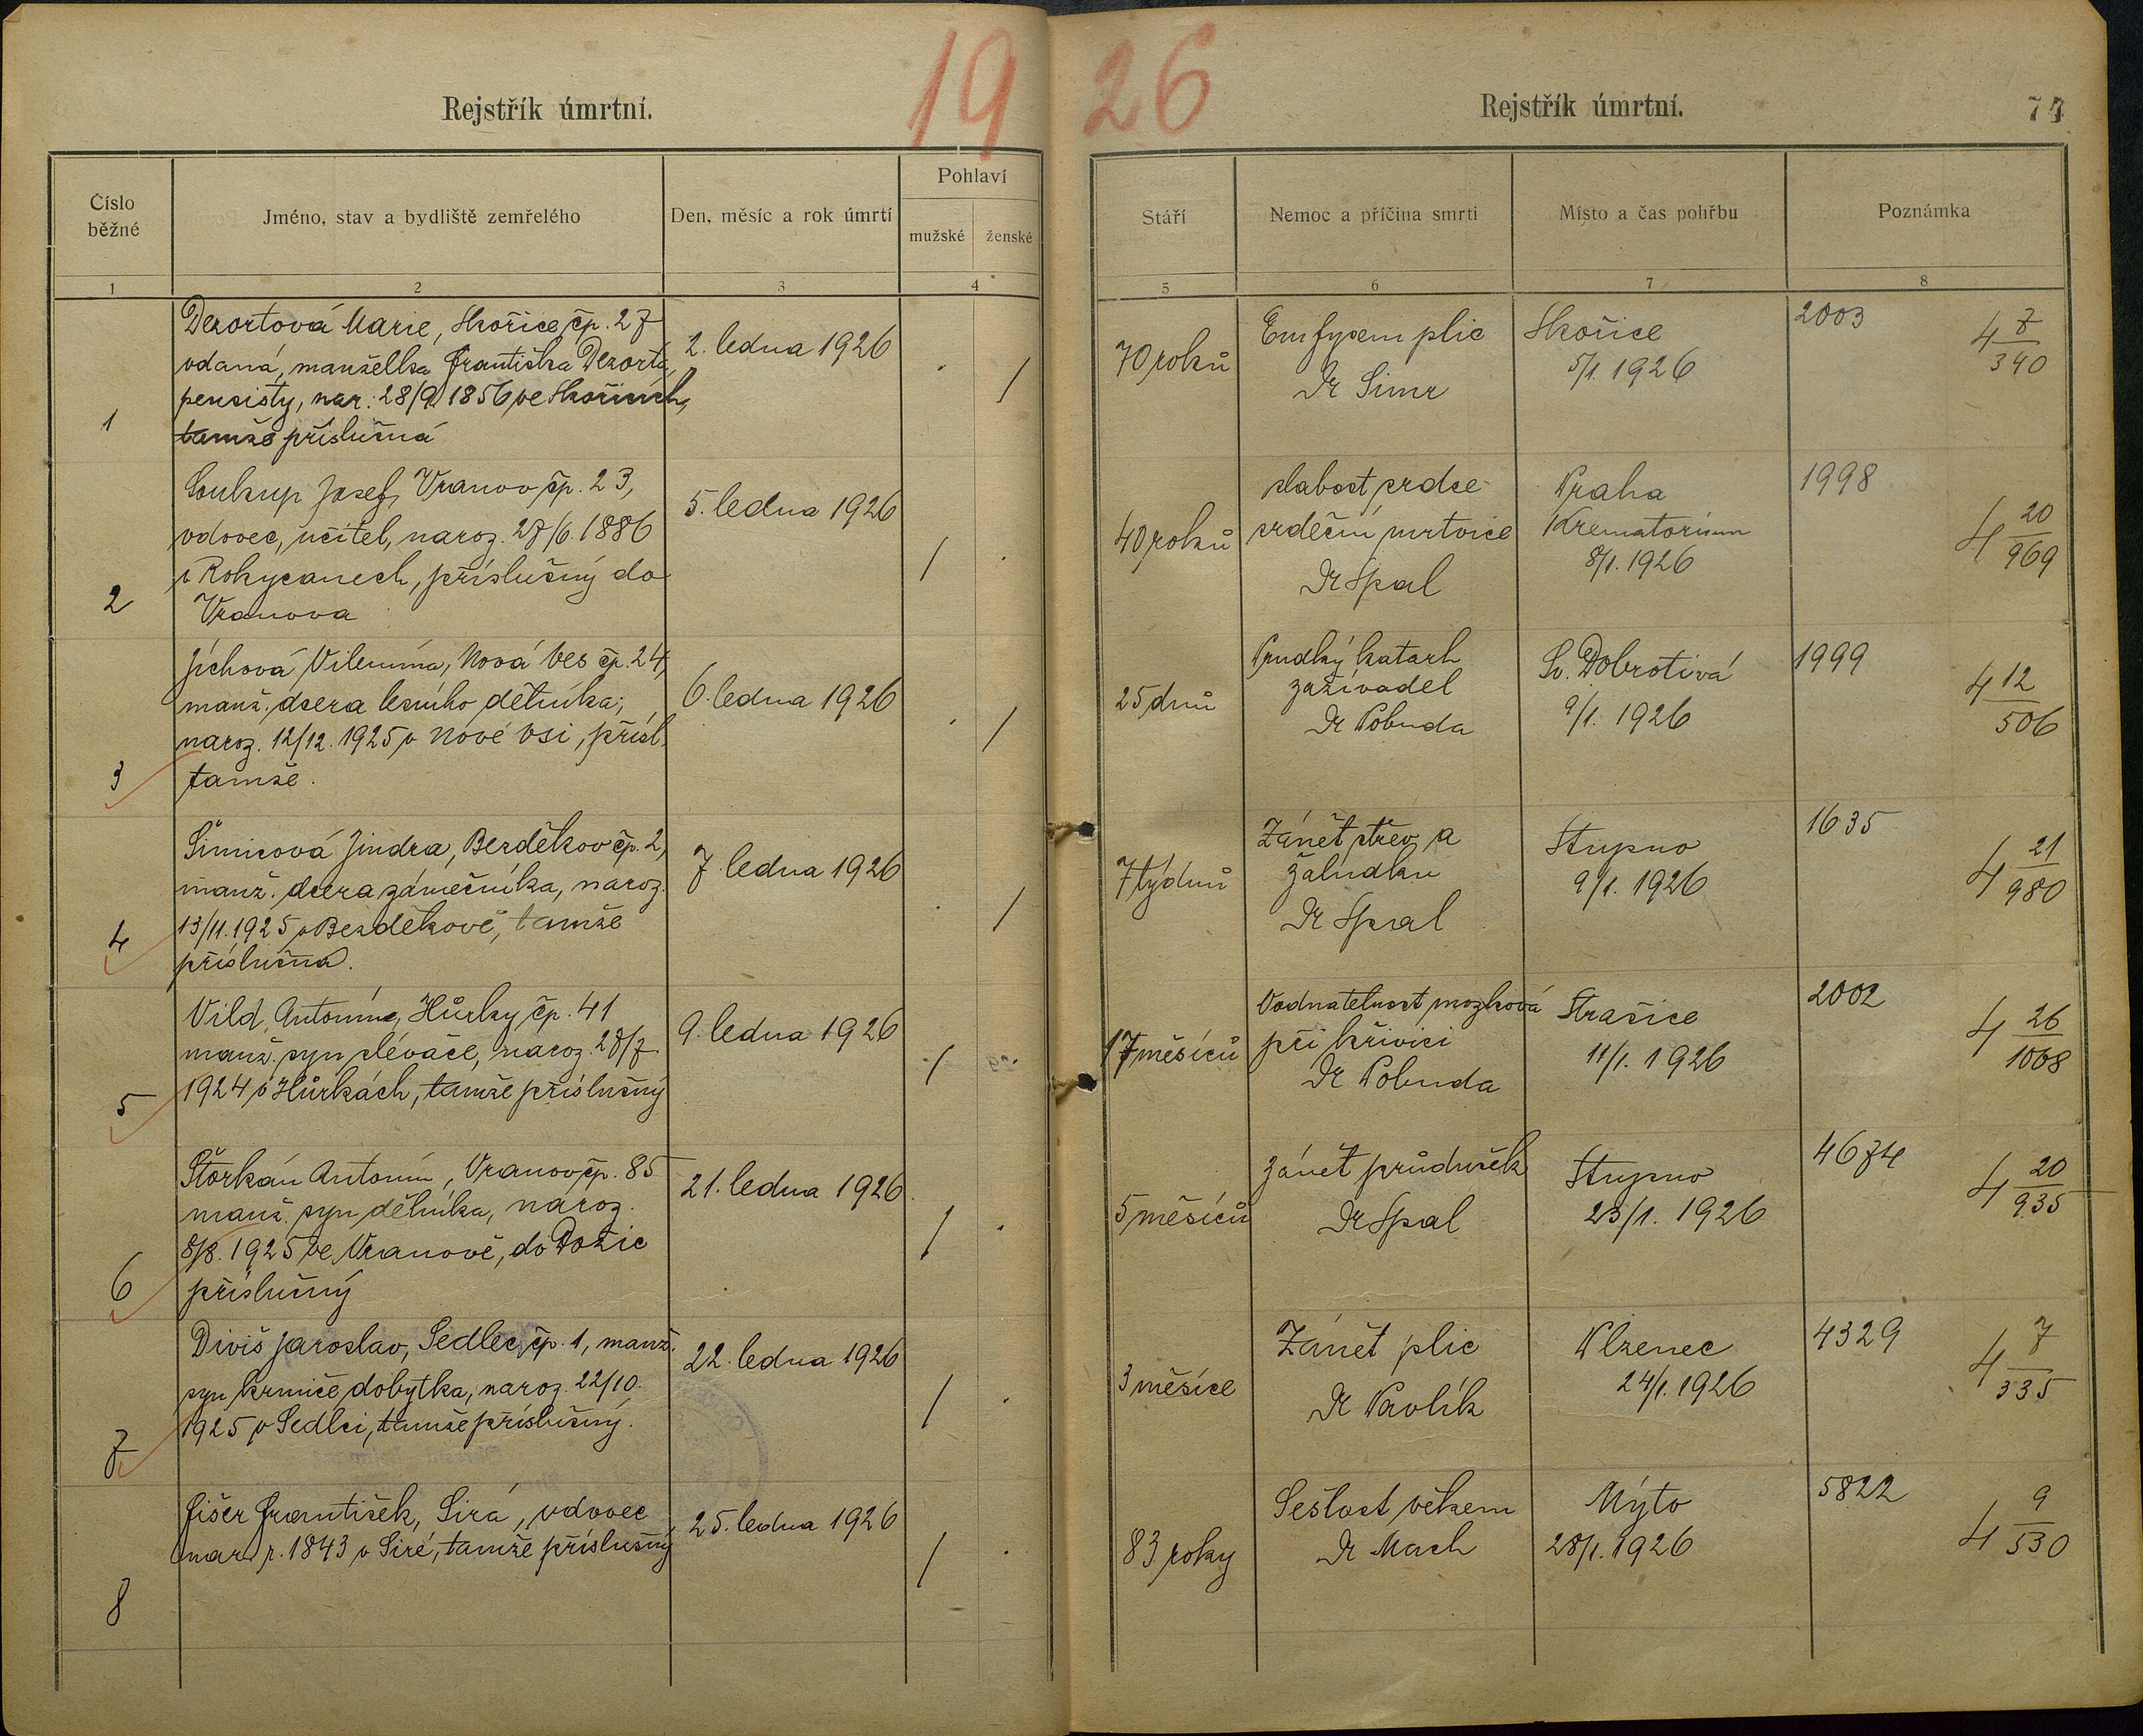 19 26
Rejstřík úmrtní.
Číslo běžné
Jméno, stav a bydliště zemřelého
Den, měsíc a rok úmrtí
Pohlaví
mužské
ženské
1 2 3 4
1
Dezortová Marie, Skořice čp. 27
vdaná, manželka Františka Dezorta,
pensisty, nar. 28/9 1856 ve Skořicích,
tamže příslušná
2. ledna 1926
. /
2
Soukup Josef, Vranov čp. 23,
vdovec, učitel, naroz. 27/6. 1886
v Rokycanech, příslušný do
Vranova
5. ledna 1926
/ .
3
Jíchová Vilemína, Nová Ves čp. 24,
manž. dcera lesního dělníka,
naroz. 12/12. 1925 v Nové Vsi, přísl.
tamže.
6. ledna 1926
. /
4
Šimicová Jindra, Bezděkov čp. 2,
manž. dcera zámečníka, naroz.
13/11. 1925 v Bezděkově, tamže
příslušná.
7. ledna 1926
. /
5
Vild Antonín, Hůrky čp. 41
manž. syn slévače, naroz. 28/7.
1924 v Hůrkách, tamže příslušný
9. ledna 1926
/
6
Štorkán Antonín, Vranov čp. 85
manž. syn dělníka, naroz.
8/8. 1925 ve Vranově, do Dožic
příslušný
21. ledna 1926.
/ .
7
Diviš Jaroslav, Sedlec čp. 1, manž.
syn krmiče dobytka, naroz. 22/10.
1925 v Sedlci, tamže příslušný.
22. ledna 1926
/ .
8
Fišer František, Sirá, vdovec
nar. r. 1843 v Siré, tamže příslušný
25. ledna 1926
/ .
Rejstřík úmrtní.
Stáří
Nemoc a příčina smrti
Místo a čas pohřbu
Poznámka
5 6 7 8
70 roků
Emfysem plic
Dr Simr
Skořice
5/1. 1926
2003
4 7/340
40 roků
slabost srdce
srdeční mrtvice
Dr Spal
Praha
Krematorium
8/1. 1926
1998
4 20/969
25 dnů
Prudký katarh
zažívadel
Dr Pobuda
Sv. Dobrotivá
9/1. 1926
1999
4 12/506
7 týdnů
Zánět střev a
žaludku
Dr Spal
Stupno
9/1. 1926
1635
4 21/980
17 měsíců
Vodnatelnost mozková
při křivici
Dr Pobuda
Strašice
11/1. 1926
2002
4 26/1068
5 měsíců
Zánět průdušek
Dr Spal
Stupno
23/1. 1926
4674
4 20/935
3 měsíce
Zánět plic
Dr Pavlík
Plzenec
24/1. 1926
4329
4 7/335
83 roky
Sešlost věkem
Dr Mach
Mýto
28/1. 1926
5822
4 9/530